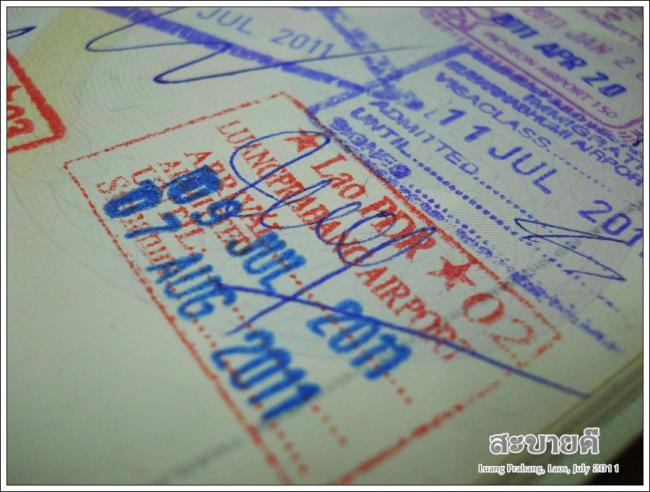 JUL 2011
2011 JAN 2
2011 APR 20
INCHEON AIRPORT 150
IMMIGRATI
SUVARNABHUMI AIRPORT
VISACLASS
ADMITTED
11 JUL 2011
UNTIL
SIGNED
Lao PDR ★ 02
LUANGPRABANG AIRPORT
ARRIVAL
09 JUL 2011
UNTIL
07 AUG 2011
สะบายดี
Luang Prabang, Laos, July 2011